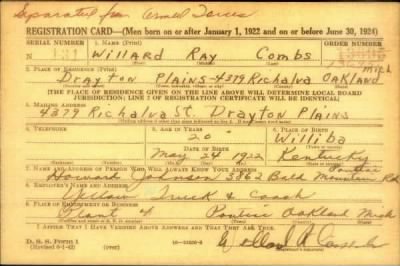 Separated from Armed Forces
REGISTRATION CARD—(Men born on or after January 1, 1922 and on or before June 30, 1924)
SERIAL NUMBER 1. NAME (Print) ORDER NUMBER
N 131 Willard Ray Combs
2. PLACE OF RESIDENCE (Print)
Drayton Plains-4379 Richalva OAKLAND Mich
[THE PLACE OF RESIDENCE GIVEN ON THE LINE ABOVE WILL DETERMINE LOCAL BOARD
JURISDICTION; LINE 2 OF REGISTRATION CERTIFICATE WILL BE IDENTICAL]
3. MAILING ADDRESS
4379 Richalva St. Drayton Plains
4. TELEPHONE 5. AGE IN YEARS 6. PLACE OF BIRTH
20 Williba
DATE OF BIRTH
May 24 1922 Kentucky
7. NAME AND ADDRESS OF PERSON WHO WILL ALWAYS KNOW YOUR ADDRESS
Johnson 3862 Bald Mountain Rd
Pontiac
8. EMPLOYER'S NAME AND ADDRESS
Yellow Truck & Coach
9. PLACE OF EMPLOYMENT OR BUSINESS
Plant 4 Pontiac Oakland Mich
I AFFIRM THAT I HAVE VERIFIED ABOVE ANSWERS AND THAT THEY ARE TRUE.
D. S. S. Form 1
(Revised 6-1-42) (over)